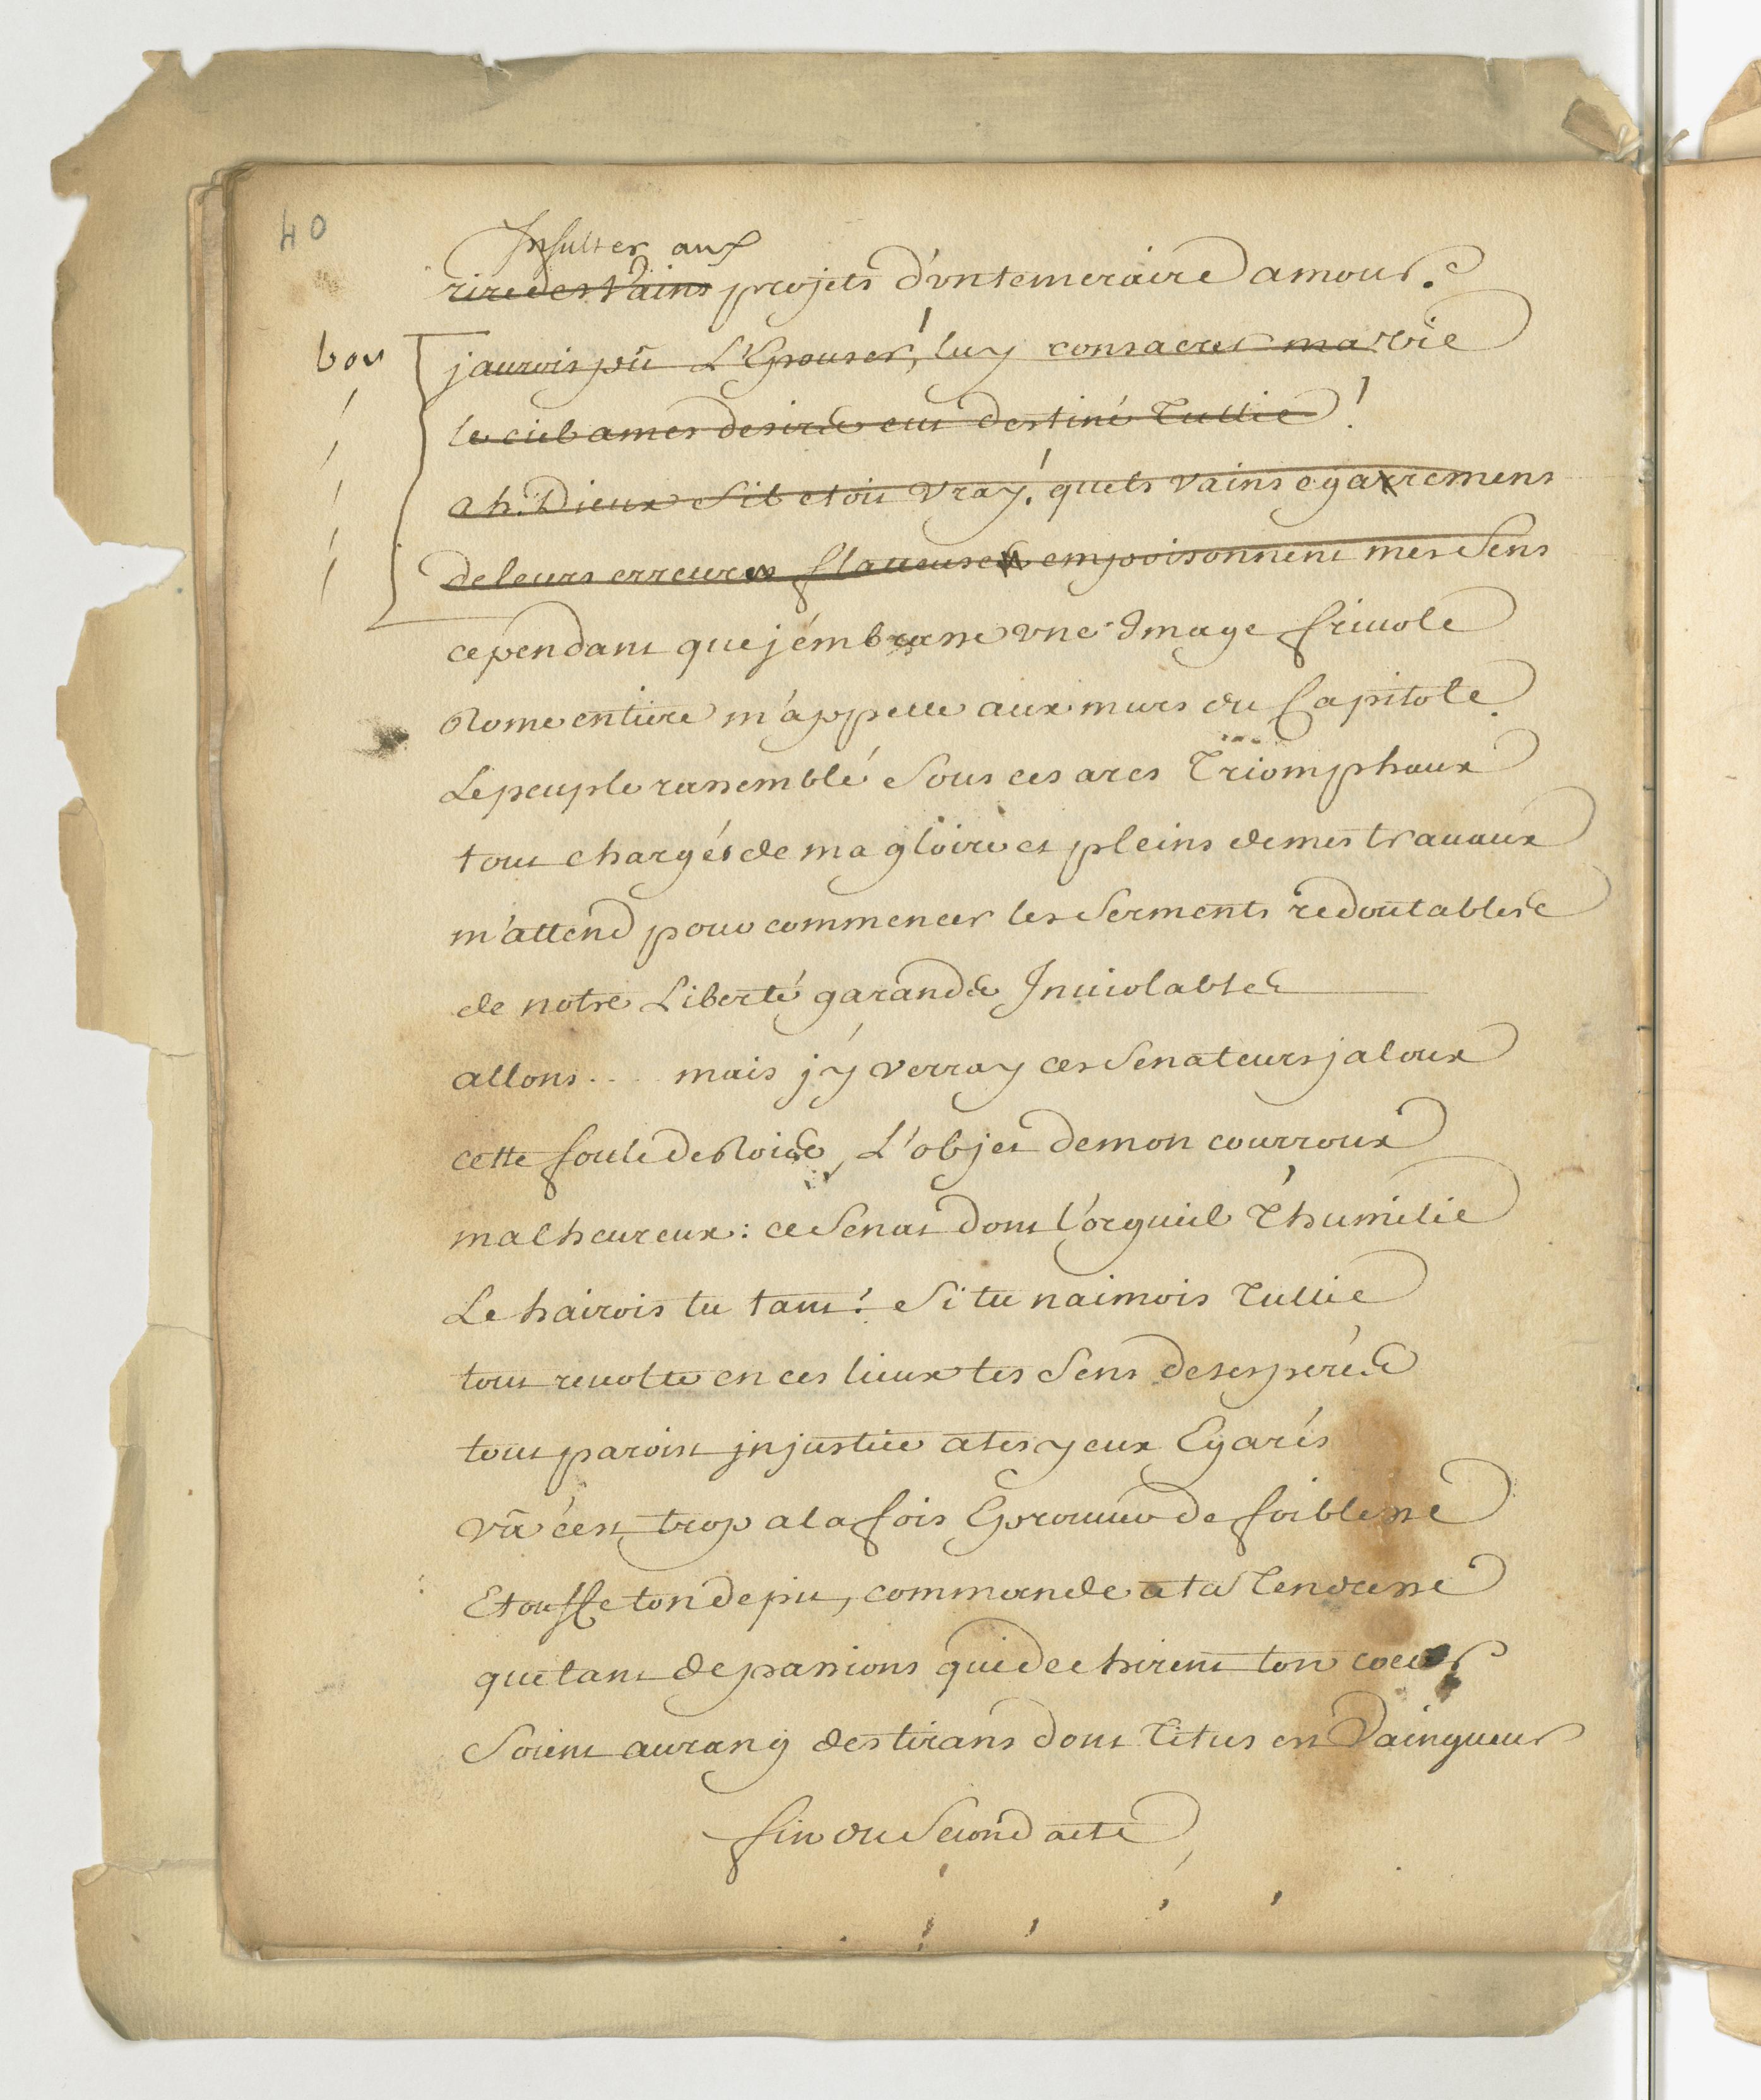 40
Insulter aux
rire des vains projets d'un temeraire amour.
bon
j'aurois pû L'Epouser, luy consacrer ma vie
le ciel a mes desirs eut destiné Tullie!
ah. Dieux s'il etoit vray! quels vains egarremens
de leurs erreurs flateuses empoisonnent mes Sens
cependant que j'embrasse une Image friuole
Rome entiere m'appelle aux murs du Capitole.
Le peuple rassemblé Sous ces arcs Triomphaux
tout chargés de ma gloire et pleins de mes trauaux
m'attend pour commencer les Serments redoutables
de notre Liberté garands Inuiolables
allons.... mais j'y verray ces Senateurs jaloux
cette foule de Rois, L'objet de mon courroux
malheureux: ce Senat dont l'orgueil t'humilie
Le hairois tu tant! Si tu naimois Tullie
tout reuolte en ces lieux tes Sens desesperés
tout paroist jnjustice a tes yeux Egarés
vä c'est trop a la fois Eprouuer de foiblesse
Etouffe ton depit, commande a ta Tendresse
que tant de passions qui dechirent ton coeur
Soient au rang des tirans dont Titus est Vainqueur
fin du Second acte